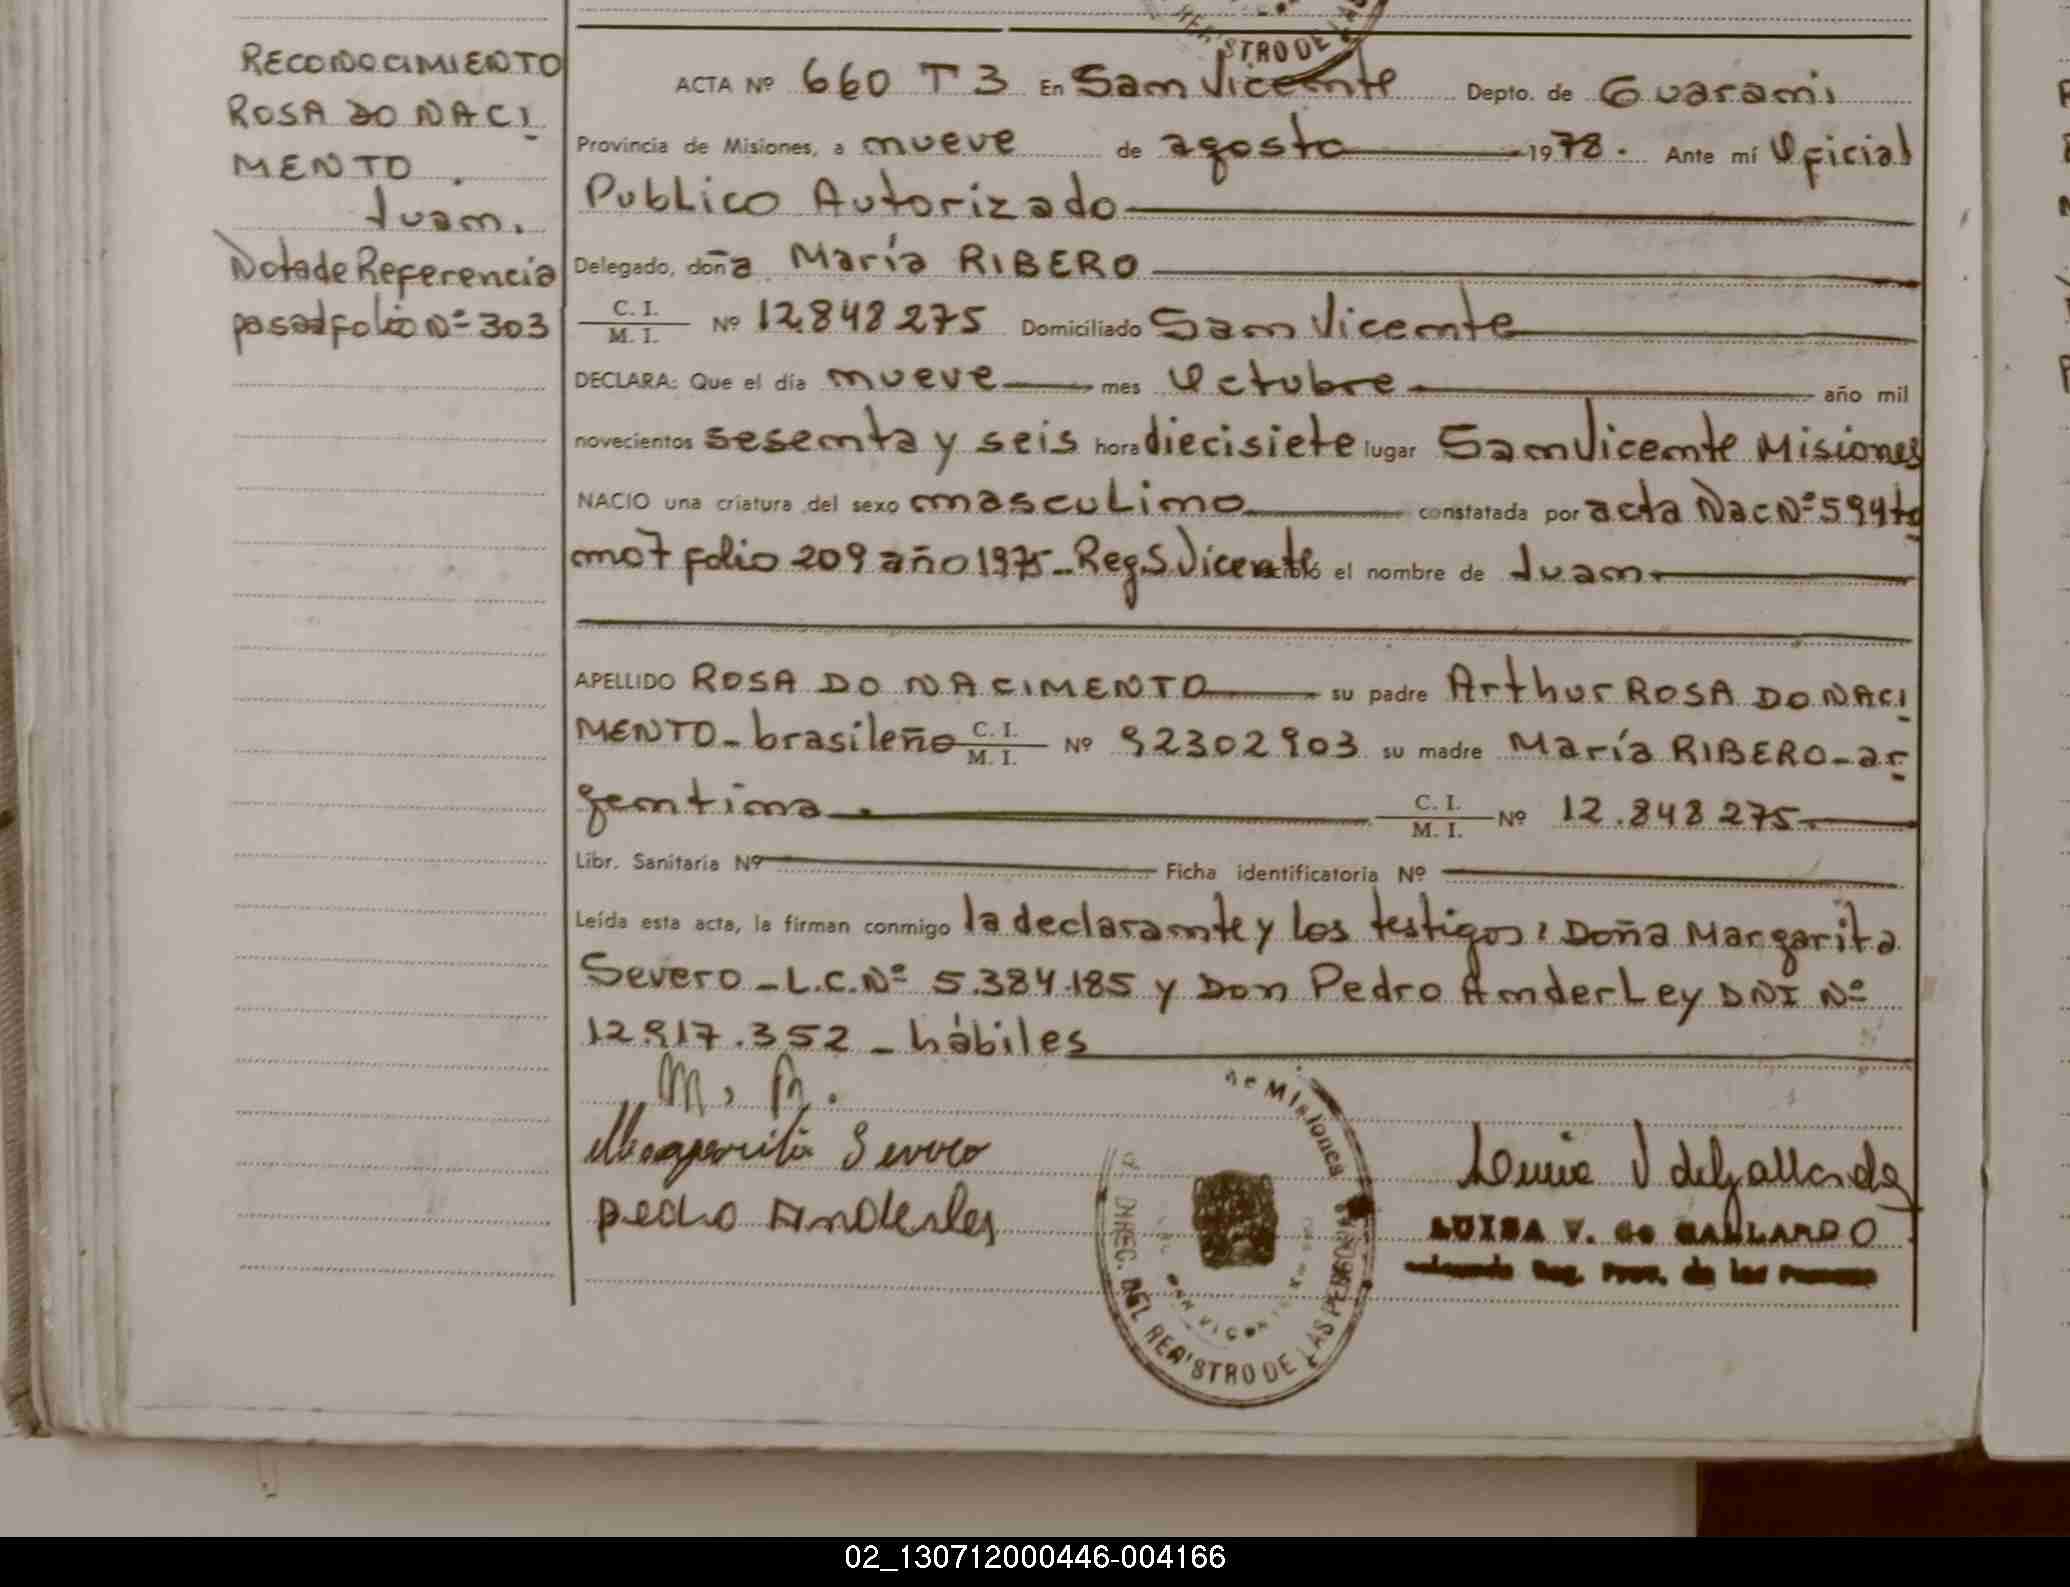 STRO DE
RECONOCIMIENTO
ROSA DO NACI
MENTO.
Juan.
Nota de Referencia
pasa al folio Nº 303
ACTA Nº 660 T 3 En San Vicente Depto. de Guaraní
Provincia de Misiones, a nueve de agosto 1978. Ante mí Oficial
Publico Autorizado
Delegado, doña María RIBERO
C. I.
M. I. Nº 12.848 275 Domiciliado San Vicente
DECLARA: Que el día nueve mes Octubre año mil
novecientos sesenta y seis hora diecisiete lugar San Vicente Misiones
NACIO una criatura del sexo masculino constatada por acta Nac Nº 594 to
mo 7 folio 209 año 1975 - Reg S. Vicente el nombre de Juan
APELLIDO ROSA DO NACIMENTO su padre Arthur ROSA DO NACI
MENTO - brasileño C. I. M. I. Nº 92302903 su madre María RIBERO - ar
gentina. C. I. M. I. Nº 12.848 275
Libr. Sanitaria Nº Ficha identificatoria Nº
Leída esta acta, la firman conmigo la declarante y los testigos: Doña Margarita
Severo - L.C. Nº 5.384.185 y Don Pedro Anderley DNI Nº
12.917.352 - hábiles
M. R.
Margarita Severo
pedro Anderley
de Misiones
DIREC. DEL REGISTRO DE LAS PERSONAS
SAN VICENTE
LUISA V. de GALLARDO
Reg. Prov. de las Personas
02_130712000446-004166